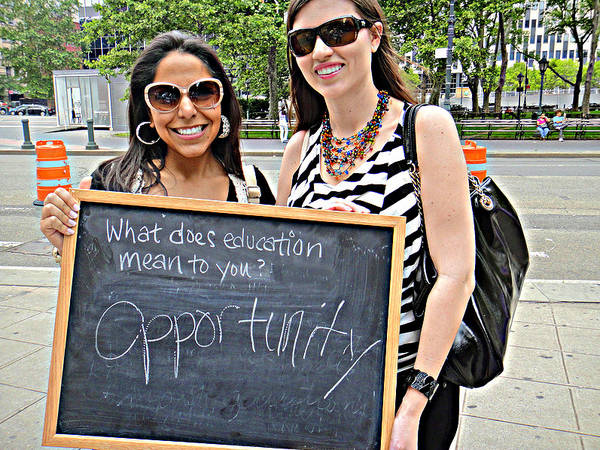 What does education
mean to you?
Opportunity